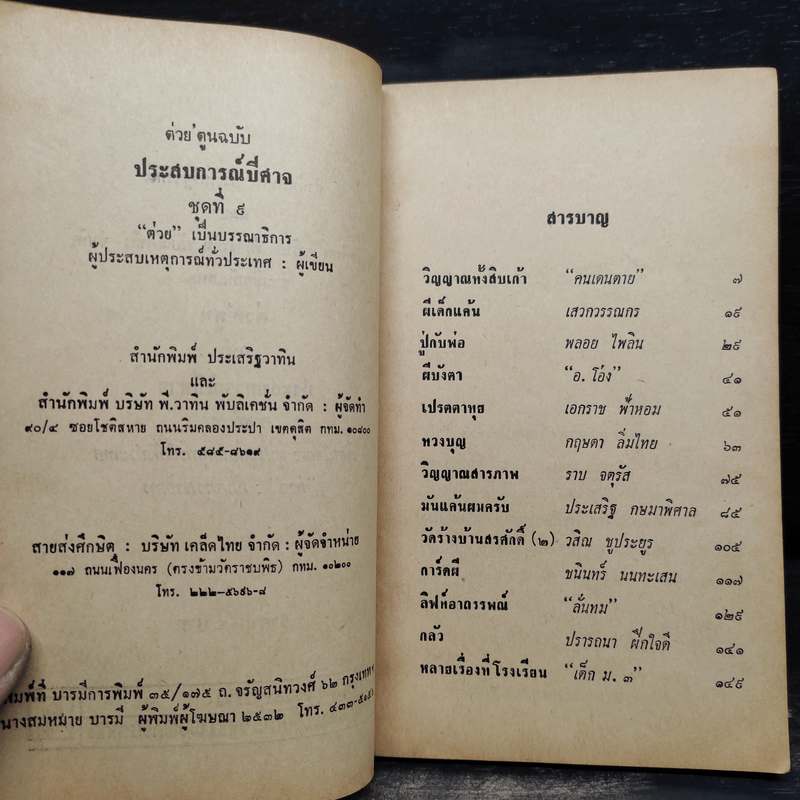 ต่วย'ตูนฉบับ
ประสบการณ์ปีศาจ
ชุดที่ ๙
"ต่วย" เป็นบรรณาธิการ
ผู้ประสบเหตุการณ์ทั่วประเทศ : ผู้เขียน
สำนักพิมพ์ ประเสริฐวาทิน
และ
สำนักพิมพ์ บริษัท พี.วาทิน พับลิเคชั่น จำกัด : ผู้จัดทำ
๙๐/๔ ซอยโชติสหาย ถนนริมคลองประปา เขตดุสิต กทม. ๑๐๘๐๐
โทร. ๕๘๕-๘๖๑๙
สายส่งศึกษิต : บริษัท เคล็ดไทย จำกัด : ผู้จัดจำหน่าย
๑๑๗ ถนนเฟื่องนคร (ตรงข้ามวัดราชบพิธ) กทม. ๑๐๒๐๐
โทร. ๒๒๒-๕๖๙๖-๘
พิมพ์ที่ บารมีการพิมพ์ ๓๕/๑๗๕ ถ. จรัญสนิทวงศ์ ๖๒ กรุงเทพฯ
นางสมหมาย บารมี ผู้พิมพ์ผู้โฆษณา ๒๕๓๒ โทร.
สารบาญ
วิญญาณทั้งสิบเก้า "คนเดนตาย" ๗
ผีเด็กแค้น เสวกวรรณกร ๑๙
ปู่กับพ่อ พลอย ไพลิน ๒๙
ผีบังตา "อ. โอ่ง" ๔๑
เปรตตาทุย เอกราช ฟ้าหอม ๕๑
หวงบุญ กฤษดา ลิ่มไทย ๖๓
วิญญาณสารภาพ ราบ จตุรัส ๗๕
มันแค้นผมครับ ประเสริฐ กษมาพิศาล ๘๕
วัดร้างบ้านสรศักดิ์ (๒) วสิณ ชูประยูร ๑๐๕
การ์ดผี ชนินทร์ นนทะเสน ๑๑๗
ลิฟท์อาถรรพณ์ "ลั่นทม" ๑๒๙
กลัว ปรารถนา ฝึกใจดี ๑๔๑
หลายเรื่องที่โรงเรียน "เด็ก ม. ๓" ๑๔๙